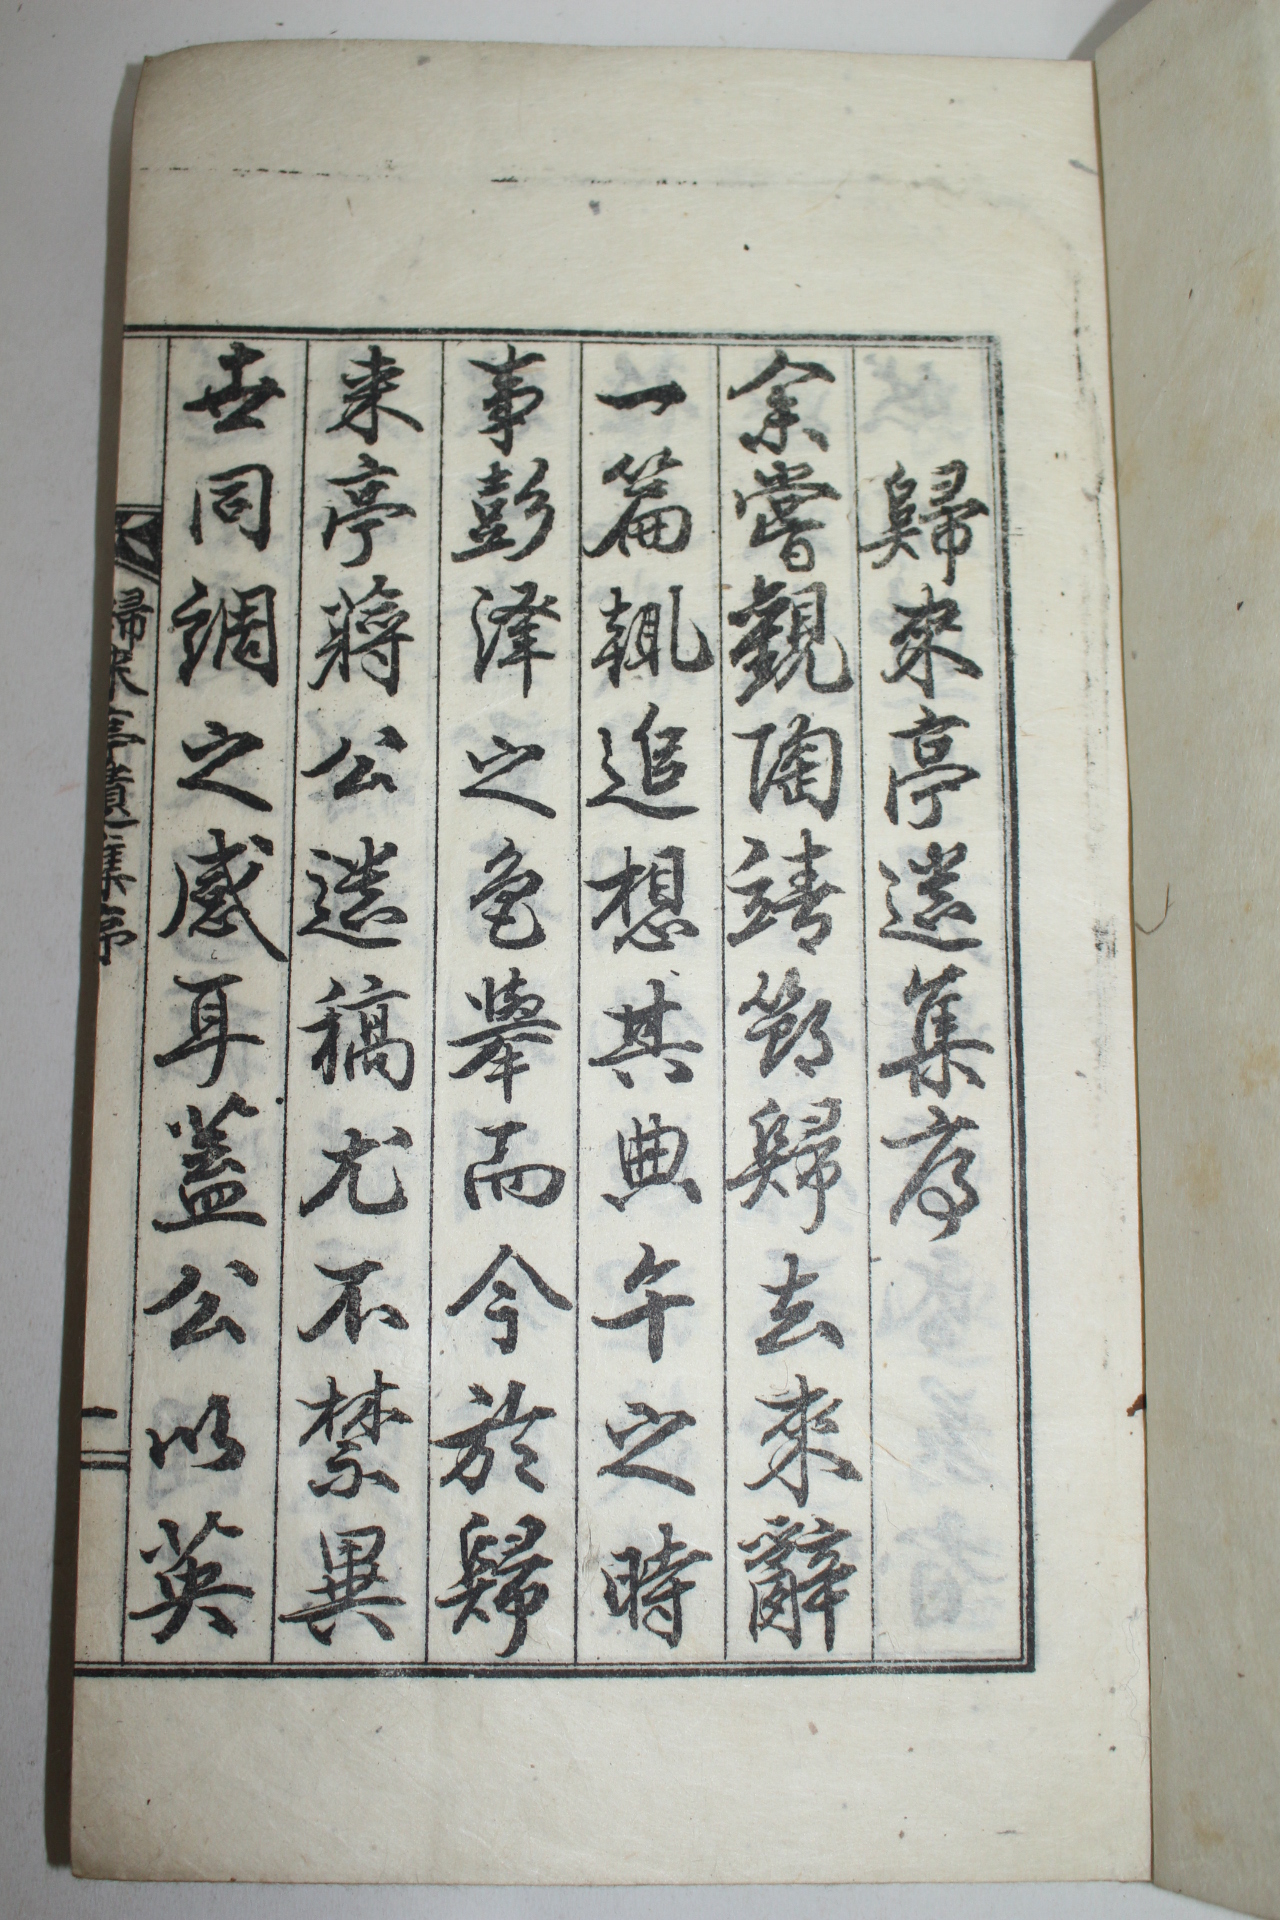 歸來亭遺集序
余嘗觀陶靖節歸去來辭
一篇輒追想其典午之時
事彭澤之色擧而今於歸
来亭蔣公遺稿尤不禁異
世同調之感耳蓋公以英
歸來亭遺集序
一